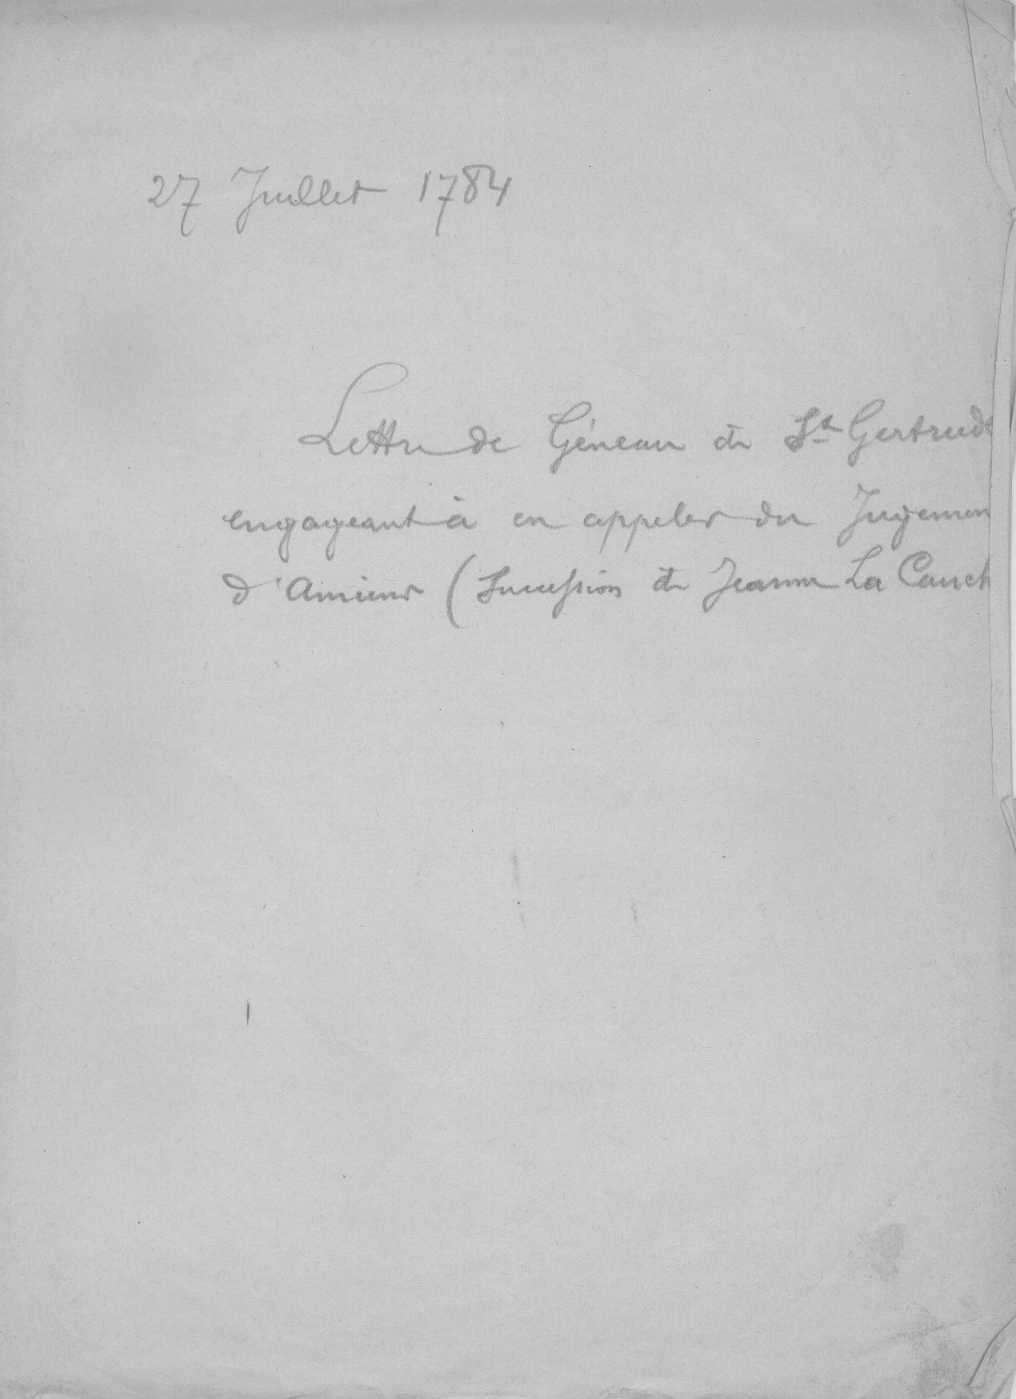 27 Juillet 1784
Lettre de Géneau de Ste Gertrude
engageant à en appeler du Jugemen
d'Amiens (Sucession de Jeanne La Cauch